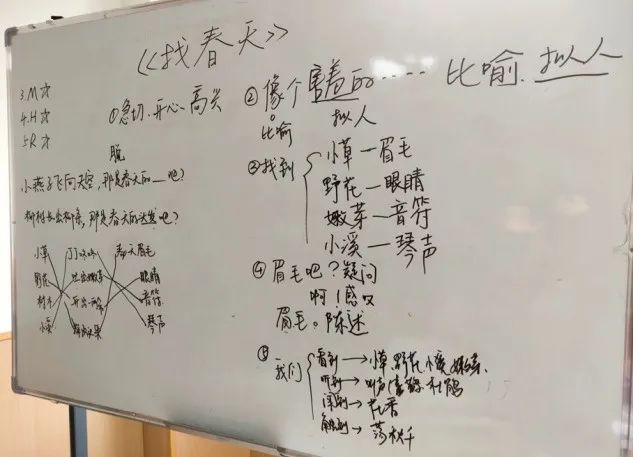 《找春天》
比喻、拟人
3.M☆
4.H☆
5R☆
①急切、开心、高兴
脱
小燕子飞向天空,那是春天的__吧?
柳树长出柳条,那是春天的头发吧?
小草
野花
树木
小溪
丁丁咚咚
春天眉毛
眼睛
音符
琴声
②像个害羞的……
比喻 拟人
③找到
小草—眉毛
野花—眼睛
嫩芽—音符
小溪—琴声
④眉毛吧?疑问
啊!感叹
眉毛。陈述
⑤我们
看到→小草、野花、小溪、嫩
听到→
闻到→花香
触到→荡秋千